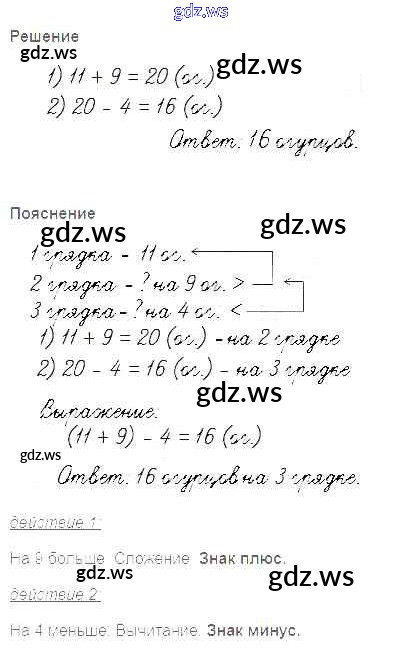 gdz.ws
Решение
gdz.ws
gdz.ws
1) 11 + 9 = 20 (ог.)
2) 20 - 4 = 16 (ог.)
Ответ: 16 огурцов.
Пояснение
gdz.ws
gdz.ws
1 грядка - 11 ог.
2 грядка - ? на 9 ог. >
3 грядка - ? на 4 ог. <
1) 11 + 9 = 20 (ог.) - на 2 грядке
2) 20 - 4 = 16 (ог.) - на 3 грядке
gdz.ws
Выражение:
(11 + 9) - 4 = 16 (ог.)
gdz.ws
Ответ: 16 огурцов на 3 грядке.
действие 1:
На 9 больше. Сложение. Знак плюс.
gdz.ws
gdz.ws
действие 2:
На 4 меньше. Вычитание. Знак минус.
gdz.ws